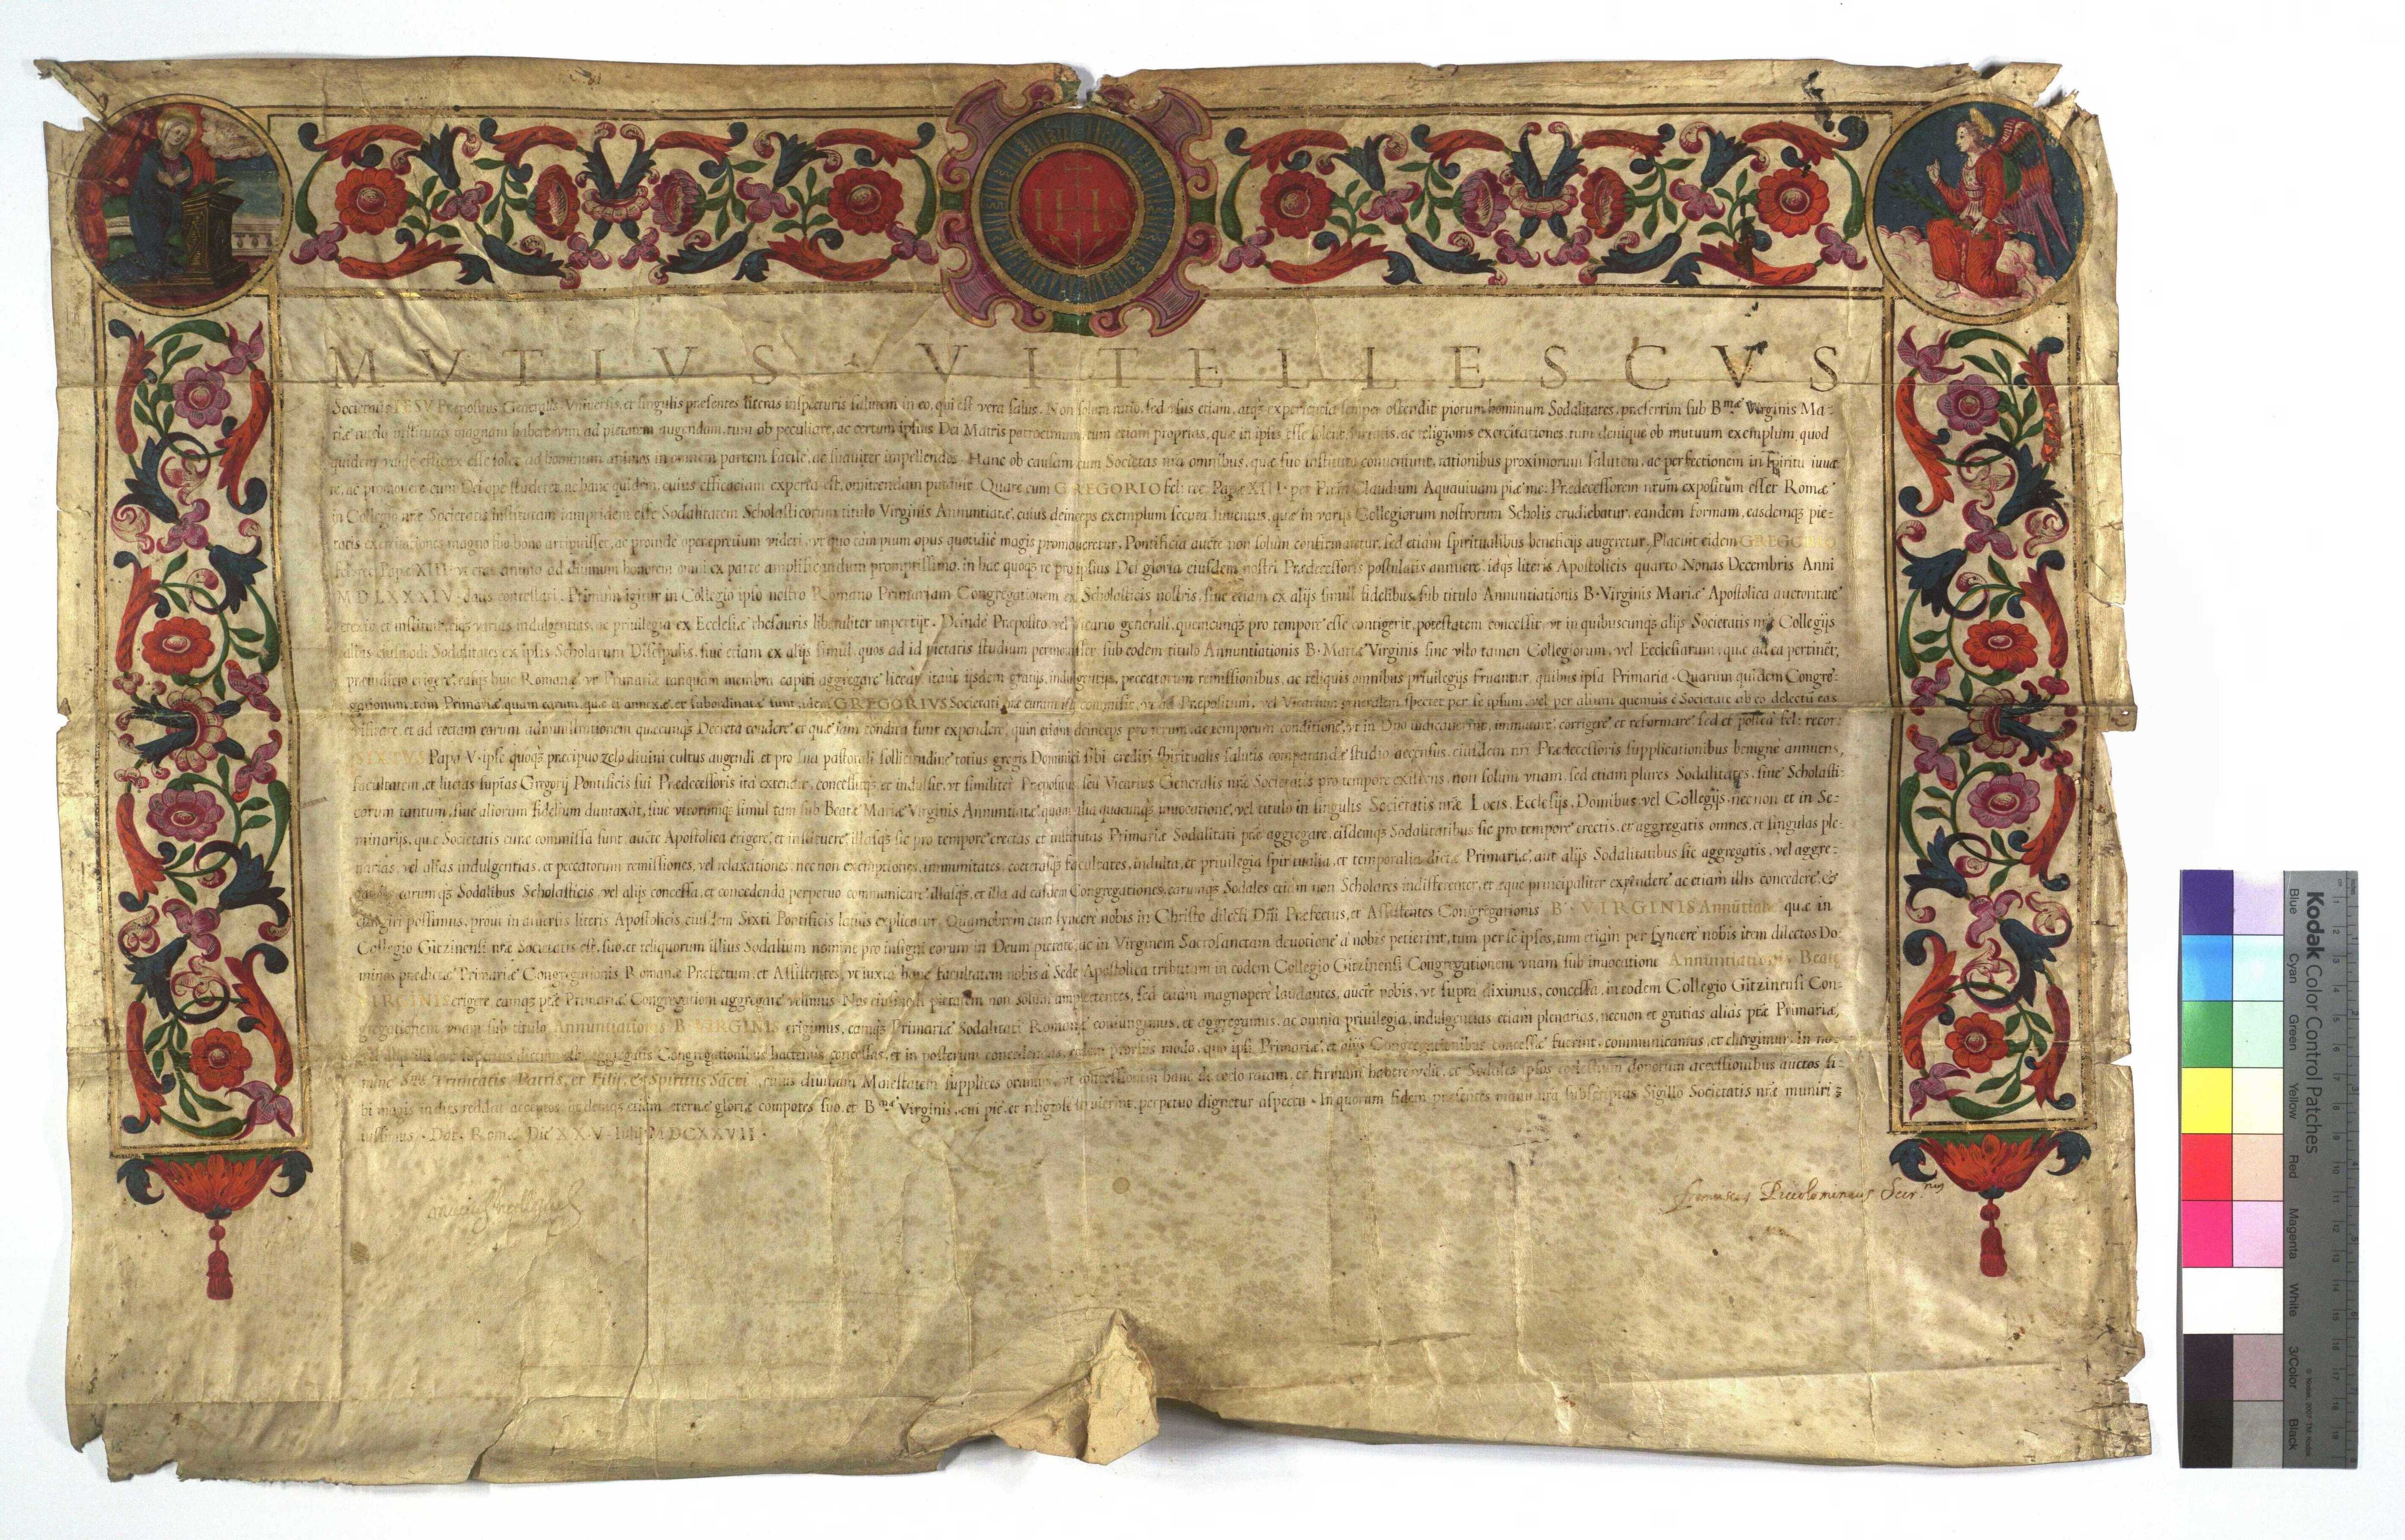 IHS
MVTIVS VITELLESCVS
Societatis IESV Præpositus Generalis. Vniuersis, et singulis præsentes literas inspecturis salutem in eo, qui est vera salus. Non solum ratio, sed vsus etiam, atq; experientia semper ostendit piorum hominum Sodalitates, præsertim sub B.mæ Virginis Ma-
riæ tutela institutas magnam habere vim ad pietatem augendam, tum ob peculiare, ac certum ipsius Dei Matris patrocinium, tum etiam proprias, quæ in ipsis esse solent, virtutis, ac religionis exercitationes, tum denique ob mutuum exemplum, quod
quidem valde efficax esse solet ad hominum animos in omnem partem facilè, ac suauiter impellendos. Hanc ob causam cum Societas nra omnibus, quæ suo instituto conueniunt, rationibus proximorum salutem, ac perfectionem in Spiritu iuua
re, ac promouere cum Dei ope studeret, ne hanc quidem, cuius efficaciam experta est, omittendam putauit. Quare cum GREGORIO fel: rec. Papæ XIII. per Claudium Aquauiuam piæ me: Prædecessorem nrum expositum esset Romæ
in Collegio nræ Societatis institutam iampridem esse Sodalitatem Scholasticorum titulo Virginis Annuntiatæ, cuius deinceps exemplum secuta Iuuentus, quæ in varijs Collegiorum nostrorum Scholis erudiebatur, eandem formam, easdemq; pie-
tatis exercitationes magno suo bono arripuisset, ac proinde operæpretium videri, vt quo tàm pium opus quotidiè magis promoueretur, Pontificia aucte non solum confirmaretur, sed etiàm spiritualibus beneficijs augeretur, Placuit eidem GREGORIO
fel: rec: Papæ XIII. vt erat animo ad diuinum honorem omni ex parte amplificandum promptissimo, in hac quoq; re pro ipsius Dei gloria eiusdem nostri Prædecessoris postulatis annuere, idq; literis Apostolicis quarto Nonas Decembris Anni
MDLXXXIV. datis contestari. Primùm igitur in Collegio ipso nostro Romano Primariam Congregationem ex Scholasticis nostris, siue etiam ex alijs simul fidelibus sub titulo Annuntiationis B. Virginis Mariæ Apostolica auctoritate
erexit, et instituit, eiq; varias indulgentias, ac priuilegia ex Ecclesiæ thesauris liberaliter impertijt. Deinde Præposito, vel Vicario generali, quicumq; pro tempore esse contigerit, potestatem concessit, vt in quibuscumq; alijs Societatis nræ Collegijs
alias eiusmodi Sodalitates ex ipsis Scholarum Discipulis, siue etiam ex alijs simul, quos ad id pietatis studium permouisset sub eodem titulo Annuntiationis B. Mariæ Virginis sine vllo tamen Collegiorum, vel Ecclesiarum, quæ ad ea pertinet,
præiudicio erigere, easq; huic Romanæ vt Primariæ tanquàm membra capiti aggregare liceat, itaut ijsdem gratijs, indulgentijs, peccatorum remissionibus, ac reliquis omnibus priuilegijs fruantur, quibus ipsa Primaria. Quarum quidem Congre-
gationum, tàm Primariæ quàm earum, quæ ei annexæ, et subordinatæ sunt, idem GREGORIVS Societati nræ curam commisit, vt ad Præpositum, vel Vicarium generalem spectet per se ipsum, vel per alium quemuis è Societate ab eo delectũ eas
visitare, et ad rectam earum administrationem quæcunq; Decreta condere, et quæ iam condita sunt expendere, quin etiam deinceps pro rerum, ac temporum conditione, vt in Dno iudicauerint, immutare, corrigere, et reformare, sed et posteà fel: recor:
SIXTVS Papa V. ipse quoq; præcipuo zelo diuini cultus augendi et pro sua pastorali sollicitudine totius gregis Dominici sibi crediti spiritualis salutis comparandæ studio accensus, eiusdem nri Prædecessoris supplicationibus benignè annuens,
facultatem, et literas suptas Gregorij Pontificis sui Prædecessoris ità extendit, concessitq; et indulsit, vt similiter Præpositus, seu Vicarius Generalis nræ Societatis pro tempore existens, non solum vnam, sed etiam plures Sodalitates, siue Scholasti-
corum tantum, siue aliorum fidelium duntaxat, siue vtrorumq; simul tam sub Beatæ Mariæ Virginis Annuntiatæ quam alia quacumq; inuocatione, vel titulo in singulis Societatis nræ Locis, Ecclesijs, Domibus, vel Collegijs, nec non et in Se-
minarijs, quæ Societatis curæ commissa sunt, aucte Apostolica erigere, et instituere, illasq; sic pro tempore erectas, et institutas Primariæ Sodalitati ptæ aggregare, eisdemq; Sodalitatibus sic pro tempore erectis, et aggregatis omnes, et singulas ple-
narias, vel alias indulgentias, et peccatorum remissiones, vel relaxationes, nec non exemptiones, immunitates, cæterasq; facultates, indulta, et priuilegia spiritualia, et temporalia dictæ Primariæ, aut alijs Sodalitatibus sic aggregatis, vel aggre-
gandis, earumq; Sodalibus Scholasticis, vel alijs concessa, et concedenda perpetuo communicare, illasq; et illa ad easdem Congregationes, earumq; Sodales etiam non Scholares indifferenter, et æque principaliter expendere ac etiam illis concedere, &
elargiri possimus, prout in diuersis literis Apostolicis eiusdem Sixti Pontificis latius explicatur. Quamobrem cum syncere nobis in Christo dilecti Dñi Præfectus, et Assistentes Congregationis B. VIRGINIS Annũtiatæ, quæ in
Collegio Gitzinensi nræ Societatis est, suo, et reliquorum illius Sodalium nomine pro insigni eorum in Deum pietate, ac in Virginem Sacrosanctam deuotione à nobis petierint, tum per se ipsos, tum etiàm per syncerè nobis item dilectos Do-
minos prædictæ Primariæ Congregationis Romanæ Præfectum, et Assistentes, vt iuxta hanc facultatem nobis à Sede Apostolica tributam in eodem Collegio Gitzinensi Congregationem vnam sub inuocatione Annuntiationis Beatæ
VIRGINIS erigere, eamq; ptæ Primariæ Congregationi aggregare velimus. Nos eiusmodi pietatem non solùm amplectentes, sed etiàm magnoperè laudantes, aucte nobis, vt supra diximus, concessa, in eodem Collegio Gitzinensi Con-
gregationem vnam sub titulo Annuntiationis B. VIRGINIS erigimus, eamq; Primariæ Sodalitati Romanæ coniungimus, et aggregamus, ac omnia priuilegia, indulgentias etiam plenarias, necnon et gratias alias ptæ Primariæ,
aggregatis Congregationibus hactenus concessas, et in posterum concedendas, eodem prorsus modo, quo ipsi Primariæ, et alijs Congregationibus concessæ fuerint, communicamus, et elargimur. In no-
mine S.mæ Trinitatis, Patris, et Filij, & Spiritus Sancti, cuius diuinam Maiestatem supplices oramus, vt concessionem hanc de cœlo ratam, et firmam habere velit, et Sodales ipsos cœlestium donorum accessionibus auctos si-
bi magis indies reddat acceptos, ut demq; etiam æternæ gloriæ compotes suo, et B.mæ Virginis, cui piè, et religiosè seruierint, perpetuo dignetur aspectu. In quorum fidem præsentes manu nra subscriptas Sigillo Societatis nræ muniri
iussimus. Dat. Romæ Die XXV. Iulij MDCXXVII.
Mutius Vitellescus
Franciscus Piccolomineus Secr.rius
Kodak Color Control Patches
Blue Cyan Green Yellow Red Magenta White 3/Color Black